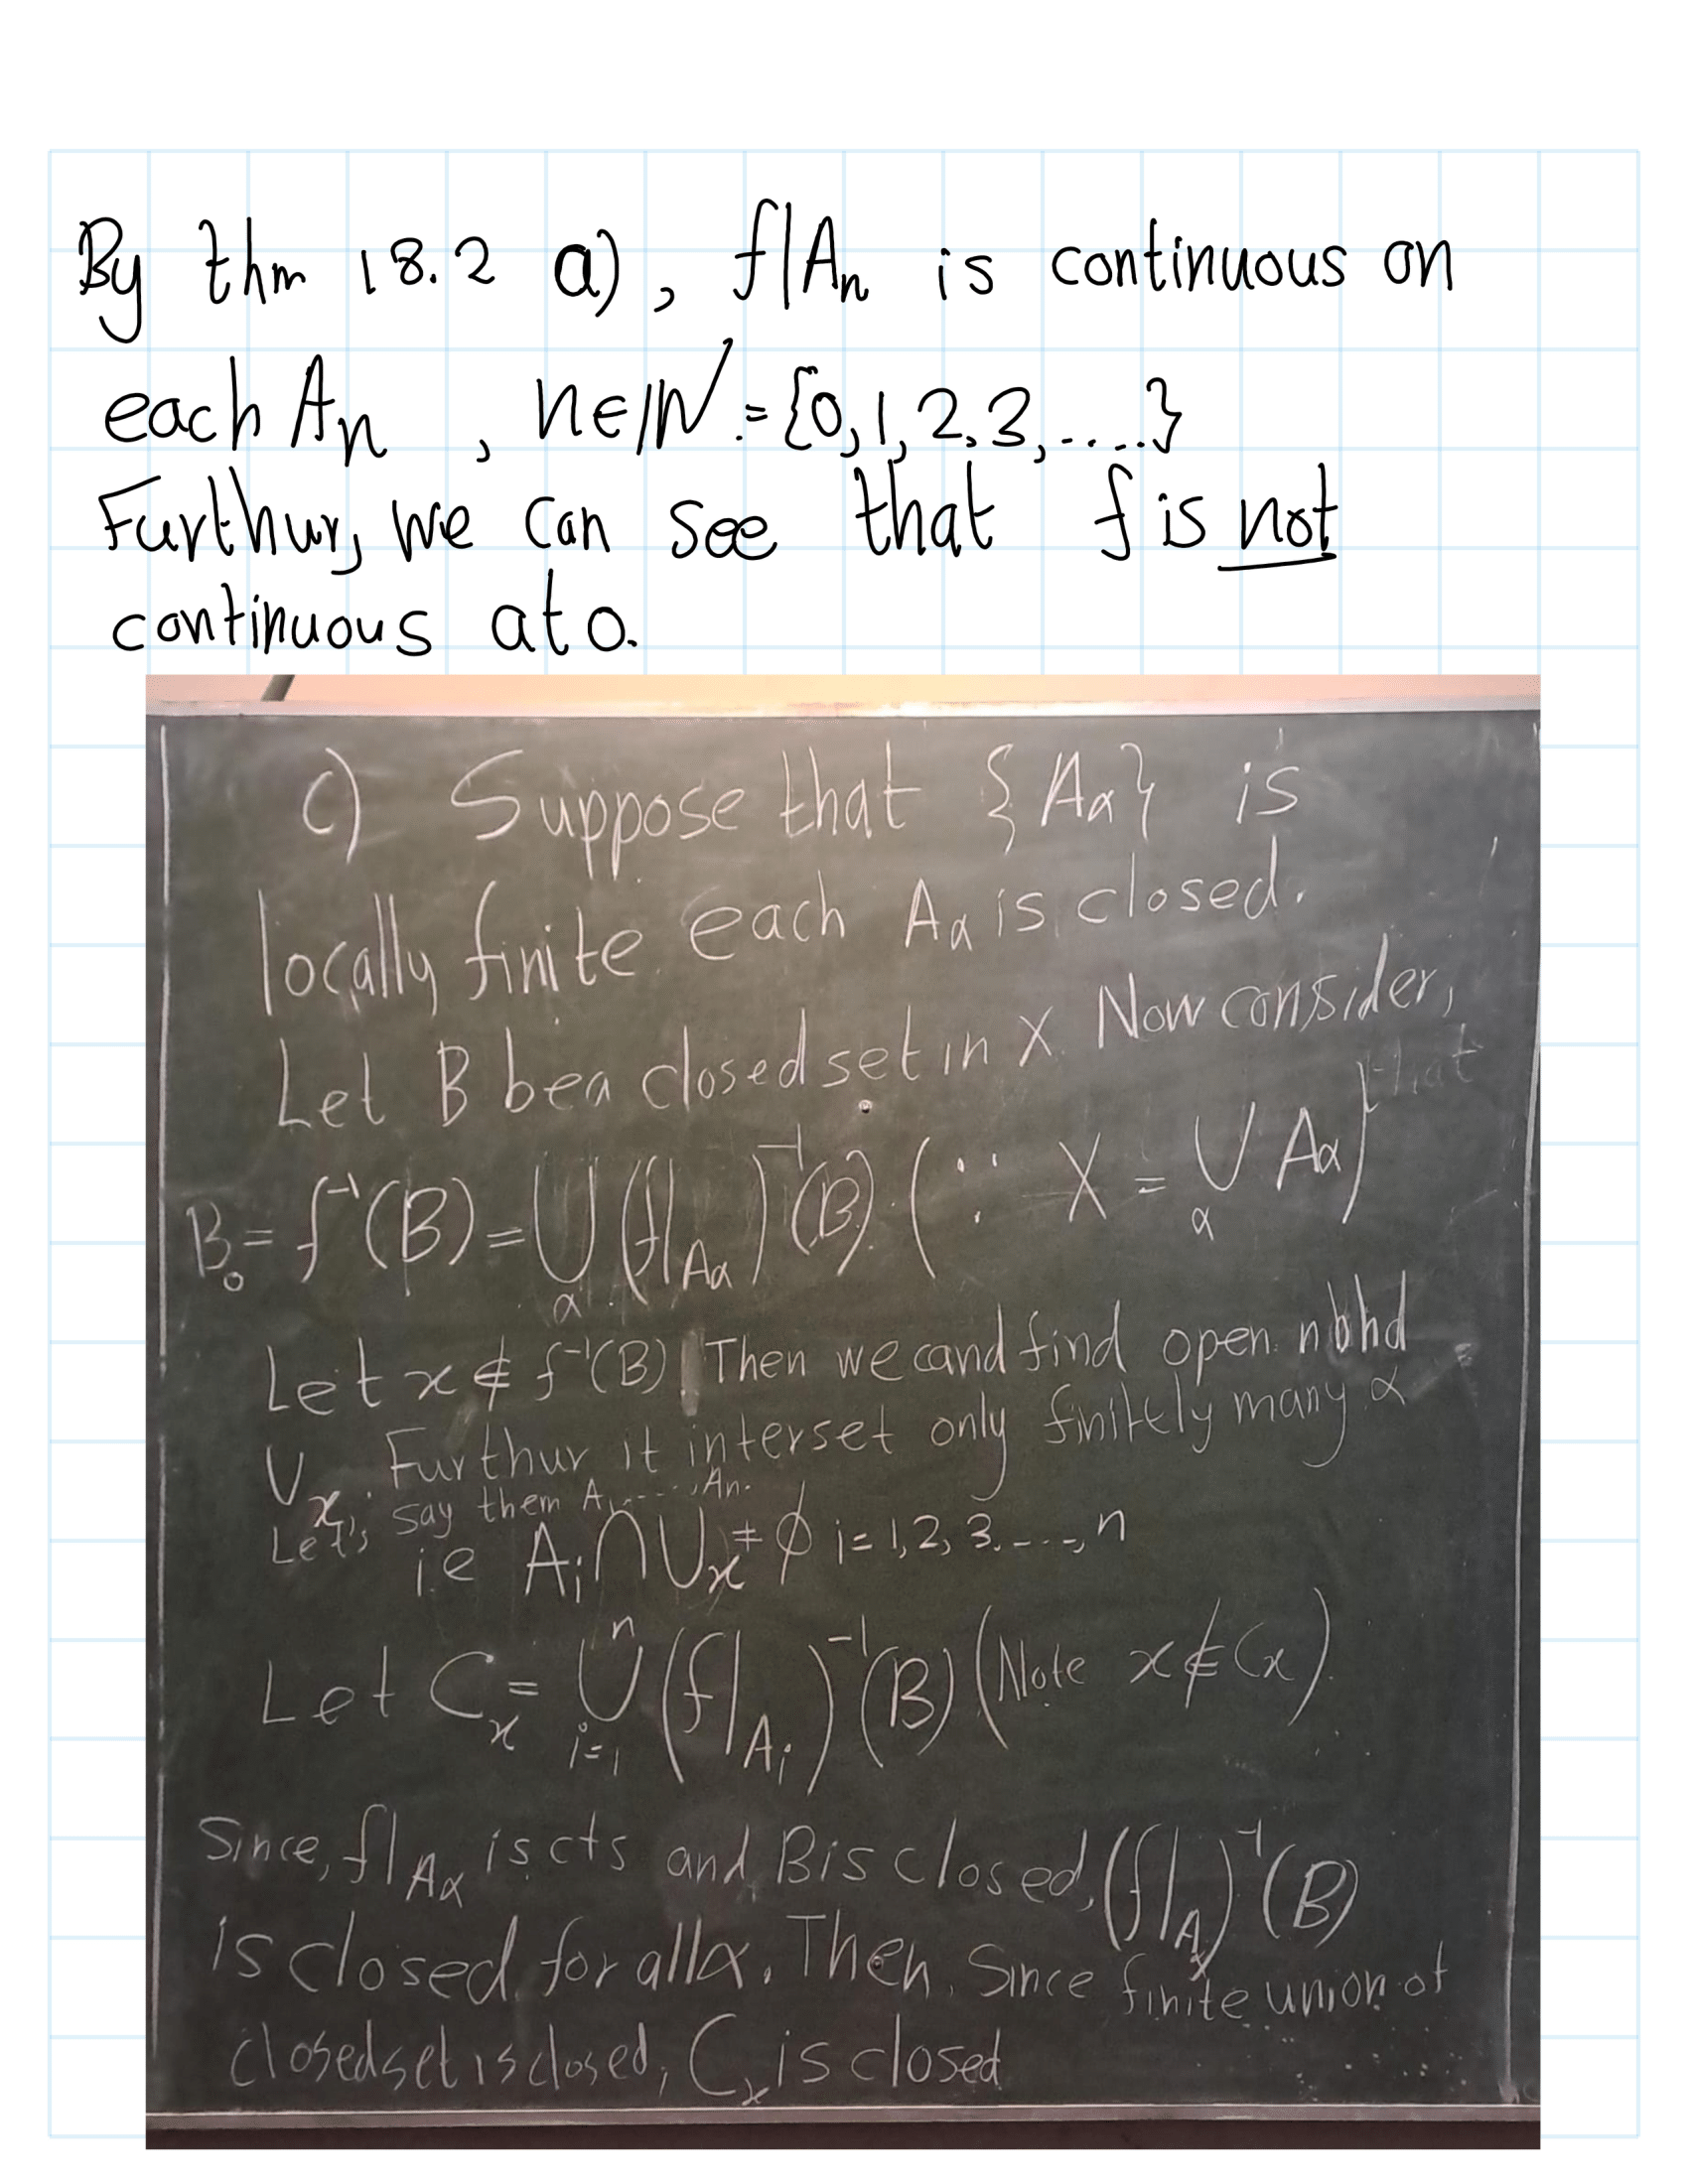 By thm 18.2 a), f|An is continuous on
each An , n∈ℕ := {0,1,2,3,.....}
Furthur, we can see that f is not
continuous at 0.
c) Suppose that {Aα} is
locally finite each Aα is closed.
Let B be a closed set in X. Now consider,
that
B₀ = f⁻¹(B) = ⋃_α (f|_Aα)⁻¹(B). (∵ X = ⋃_α Aα)
Let x ∉ f⁻¹(B) Then we cand find open nbhd
U_x. Furthur it interset only finitely many α
Let's say them A₁, ....., An.
i.e Aᵢ ∩ U_x ≠ ∅ i = 1, 2, 3, ...., n
Let C_x = ⋃_{i=1}^n (f|_Aᵢ)⁻¹(B) (Note x ∉ C_x)
Since, f|_Aα is cts and B is closed, (f|_Aα)⁻¹(B)
is closed for all α. Then, Since finite union of
closed set is closed, C_x is closed